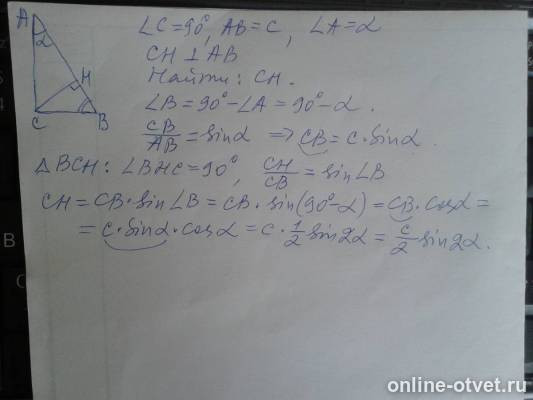 A
α
H
C
B
∠C=90°, AB=c, ∠A=α
CH ⊥ AB
Найти: CH.
∠B=90°-∠A=90°-α.
CB/AB=sinα ⇒ CB=c·sinα.
△BCH: ∠BHC=90°, CH/CB=sin∠B
CH=CB·sin∠B=CB·sin(90°-α)=CB·cosα=
=c·sinα·cosα=c·1/2 sin2α=c/2 sin2α.
online-otvet.ru